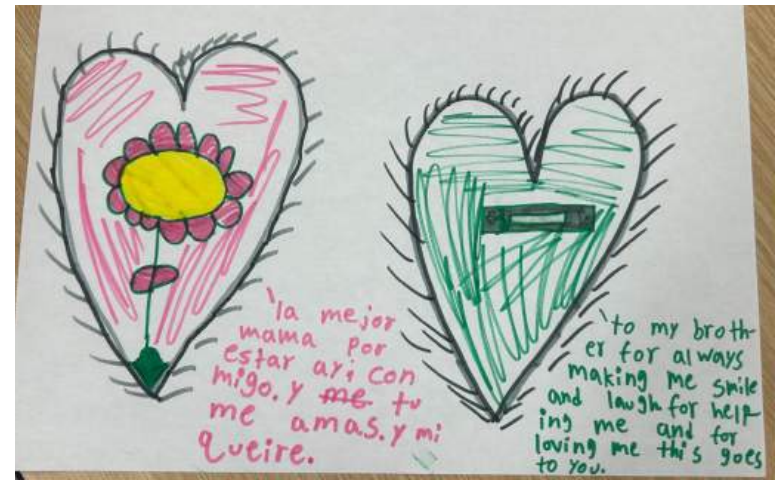 la mejor
mama por
estar ayi con
migo. y me tu
me amas. y mi
queire.
to my broth-
er for always
making me smile
and laugh for help
ing me and for
loving me this goes
to you.